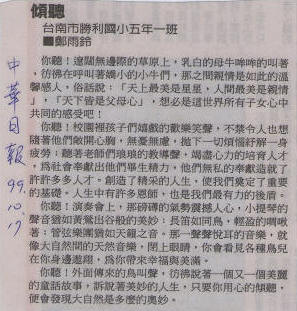 傾聽
台南市勝利國小五年一班
■鄭雨鈴
你聽！遼闊無邊際的草原上，乳白的母牛哞哞的叫著
，彷彿在呼叫著嬌小的小牛們，那之間親情是如此的溫
馨感人，俗話說：「天上最美是星星，人間最美是親情
」，「天下皆是父母心」，想必是這世界所有子女心中
共同的感受吧！
你聽！校園裏孩子們嬉戲的歡樂笑聲，不禁令人也想
隨著他們敞開心胸，無憂無慮，拋下一切煩惱紓解一身
疲勞，聽著老師們琅琅的教導聲，竭盡心力的培育人才
，為社會奉獻出他們畢生精力，他們無私的奉獻造就了
許許多多人才，創造了精采的人生，使我們奠定了重要
的基礎。人生中有許多恩師，也是我們最有力的後盾。
你聽！演奏會上，那磅礡的氣勢震撼人心，小提琴的
聲音猶如黃鶯出谷般的美妙；長笛如同鳥，輕盈的啁啾
著；管弦樂團猶如天籟之音。那一聲聲悅耳的音樂，就
像大自然間的天然音樂，閉上眼睛，你會看見各種鳥兒
在你身邊遨翔，為你帶來幸福與美滿。
你聽！外面傳來的鳥叫聲，彷彿說著一個又一個美麗
的童話故事，訴說著美妙的人生，只要你用心的傾聽，
便會發現大自然是多麼的奧妙。
中華日報 99.10.17